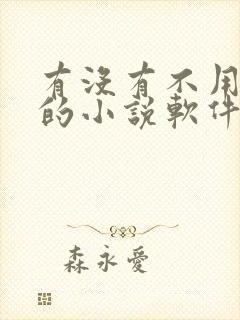 有沒有不用
的小說軟件
森永愛